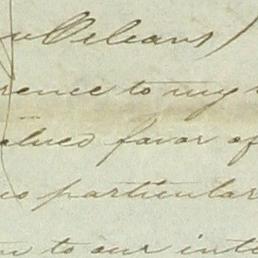 Orleans)
rence to my
favor of
particular
to our inte